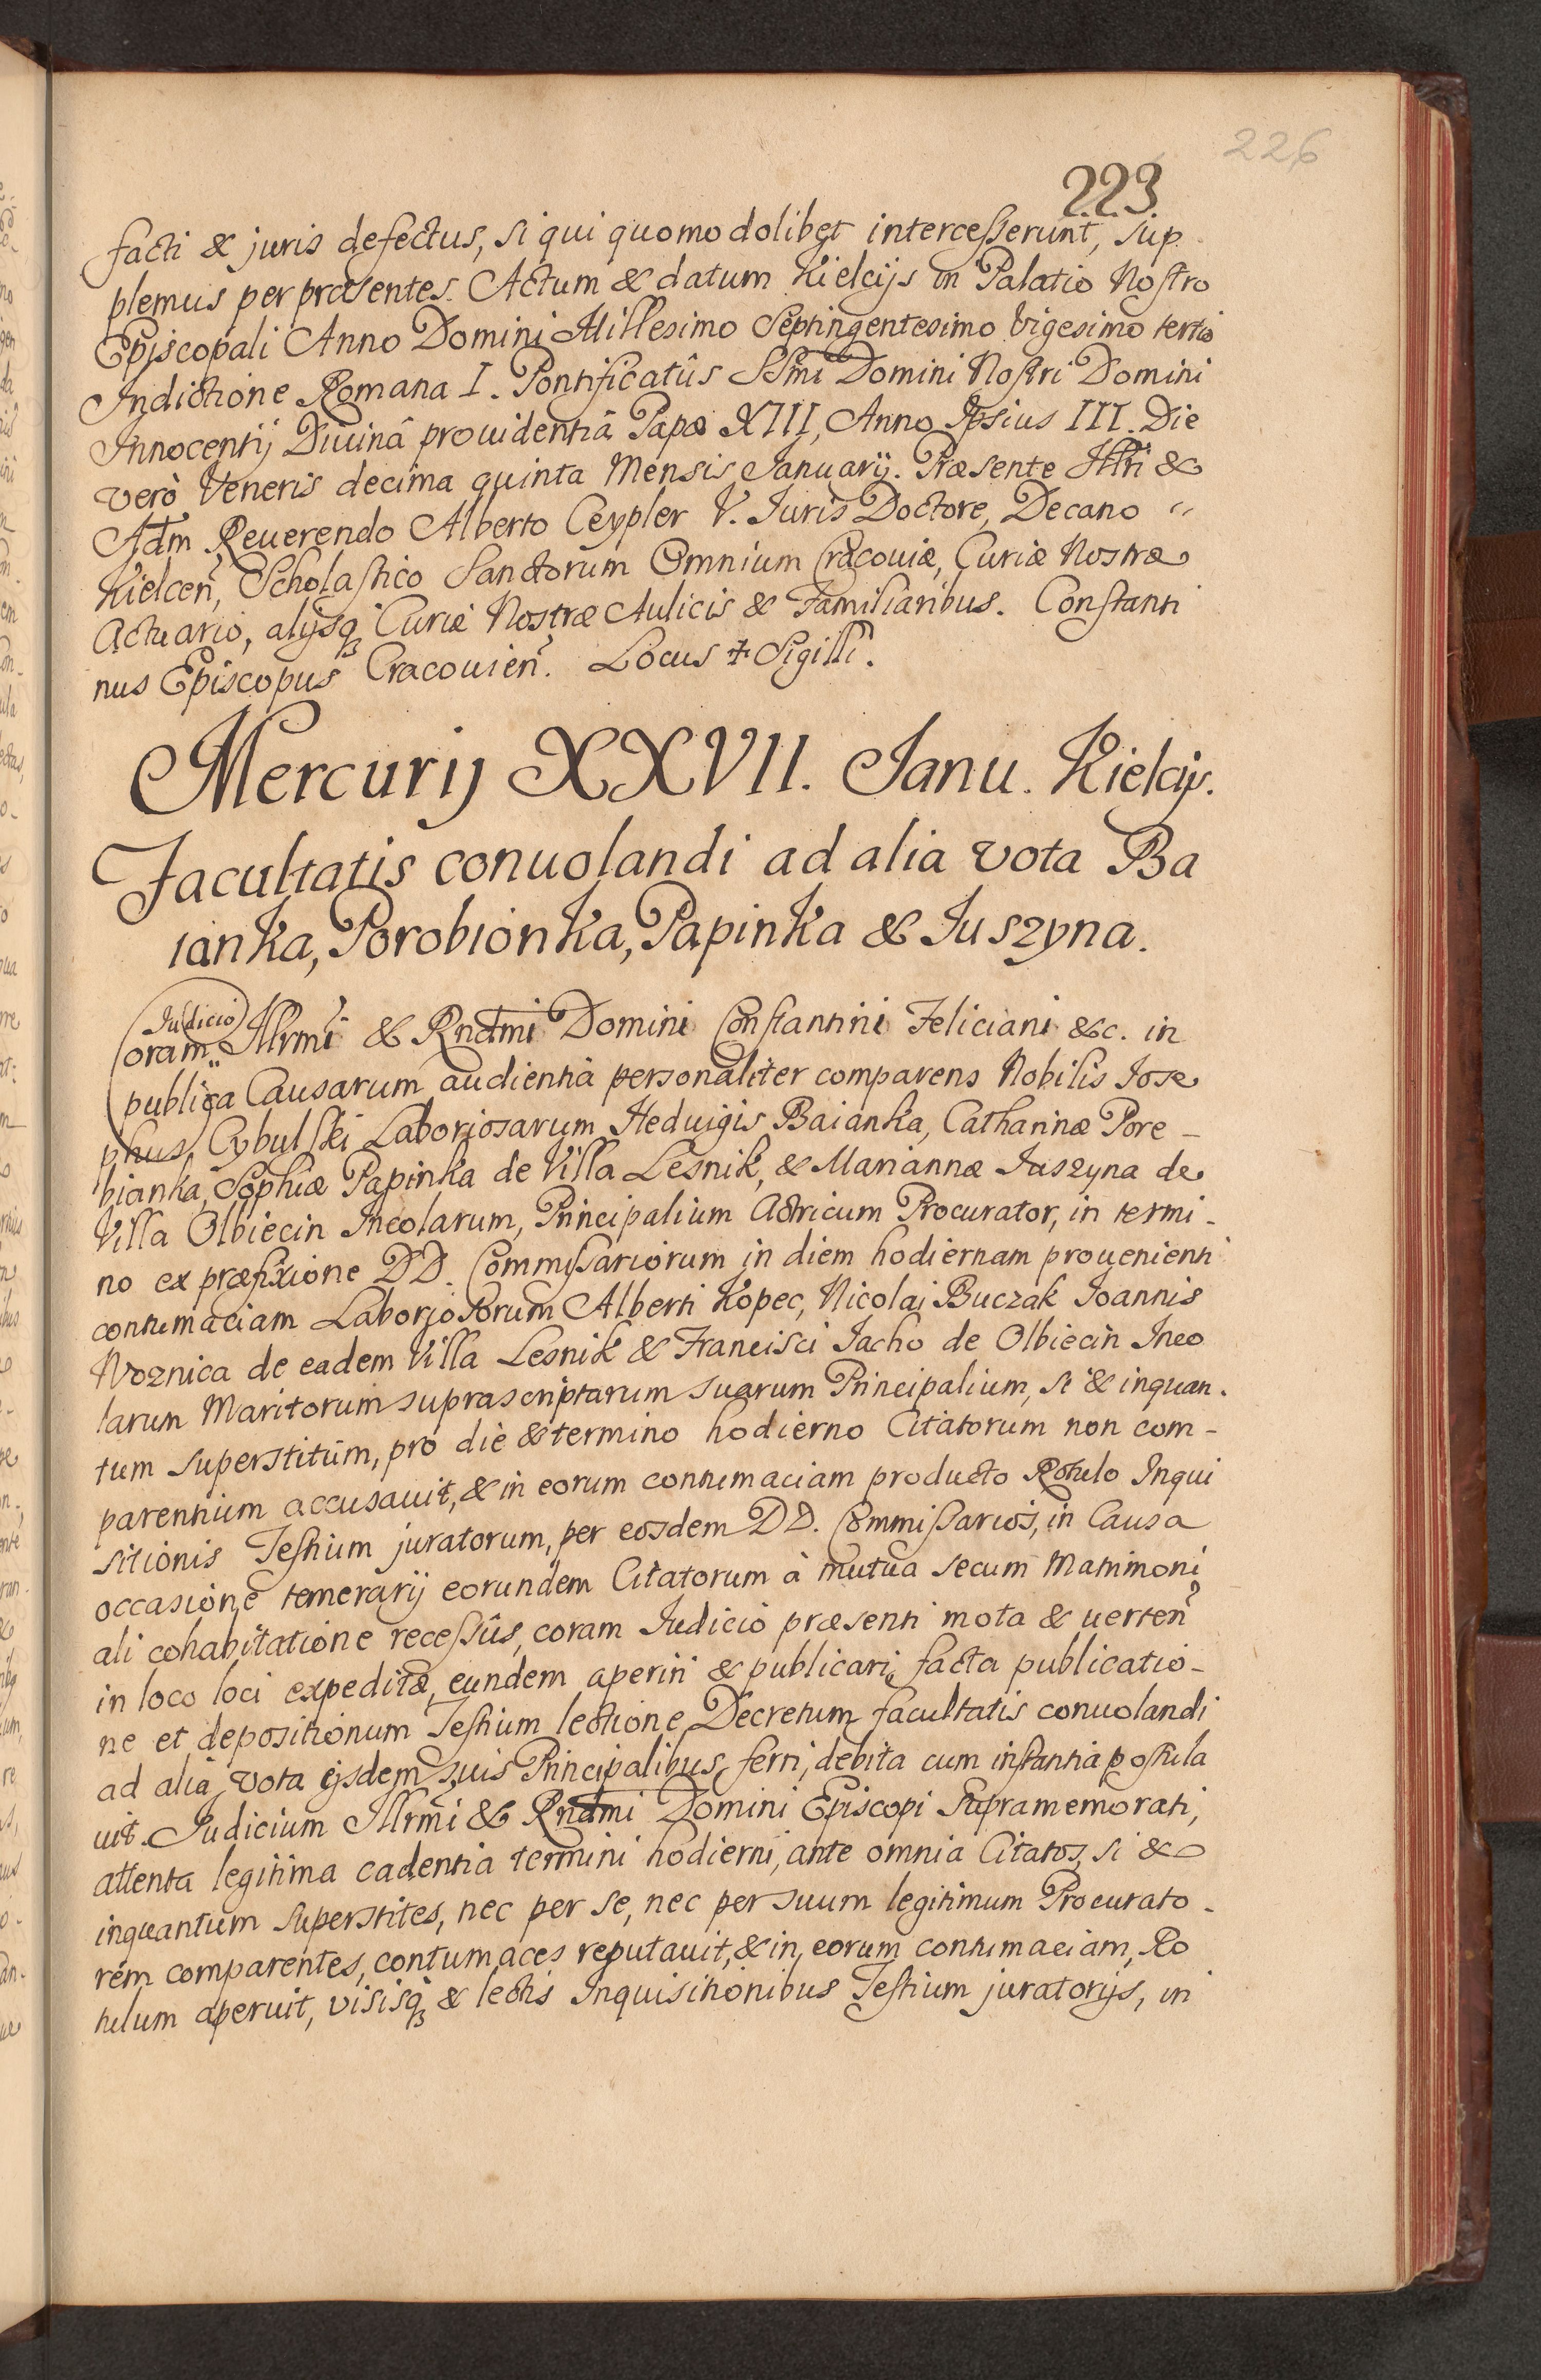 226
223
facti & juris defectus, si qui quomodolibet intercesserunt, sup
plemus per præsentes. Actum & datum Kielcijs in Palatio Nostro
Episcopali Anno Domini Millesimo Septingentesimo Vigesimo tertio
Indictione Romana I. Pontificatûs SSmi Domini Nostri Domini
Innocentij Diuinâ prouidentiâ Papæ XIII, Anno Ipsius III. Die
verò Veneris decima quinta Mensis Januarij. Præsente Illri &
Adm Reuerendo Alberto Ceypler V. Juris Doctore, Decano "
Kielcen, Scholastico Sanctorum Omnium Cracouiæ, Curiæ Nostræ
Actuario, alijsq Curiæ Nostræ Aulicis & Familiaribus. Constanti
nus Episcopus Cracouien. Locus ☩ Sigilli.
Mercurij XXVII. Janu. Kielcijs.
Facultatis conuolandi ad alia vota Ba
ianka, Porobionka, Papinka & Juszyna.
Coram Judicio Illrmi & Rndmi Domini Constantini Feliciani &c. in
publica Causarum audientia personaliter comparens Nobilis Jose
phus Cybulski Laboriosarum Heduigis Baianka, Catharinæ Pore-
bianka, Sophiæ Papinka de Villa Lesnik, & Mariannæ Juszyna de
Villa Olbiecin Incolarum, Principalium Actricum Procurator, in termi-
no ex præfixione DD. Commissariorum in diem hodiernam prouenienti
contumaciam Laboriosorum Alberti Kopec, Nicolai Buczak Joannis
Woznica de eadem Villa Lesnik & Francisci Jacho de Olbiecin Inco
larum Maritorum suprascriptarum suarum Principalium, si & inquan-
tum superstitum, pro die & termino hodierno Citatorum non com-
parentium accusauit, & in eorum contumaciam producto Rotulo Inqui
sitionis Testium juratorum, per eosdem DD. Commissarios, in Causa
occasione temerarij eorundem Citatorum à mutua secum Matrimoni
ali cohabitatione recessûs, coram Judicio præsenti mota & uerten
in loco loci expeditæ, eundem aperiri & publicari, facta publicatio-
ne et depositionum Testium lectione, Decretum facultatis conuolandi
ad alia vota ijsdem suis Principalibus ferri, debita cum instantia postula
uit. Judicium Illrmi & Rndmi Domini Episcopi Supramemorati,
attenta legitima cadentia termini hodierni, ante omnia Citatos, si &
inquantum superstites, nec per se, nec per suum legitimum Procurato-
rem comparentes, contumaces reputauit, & in eorum contumaciam, Ro
tulum aperuit, visisq & lectis Inquisitionibus Testium juratorijs, in